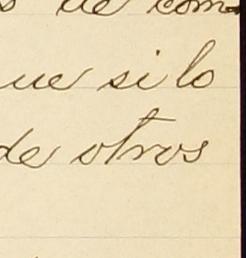 de com-
ue si lo
de otros